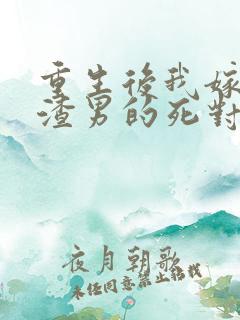 重生後我嫁
渣男的死對
夜月朝歌
未經同意禁止轉載